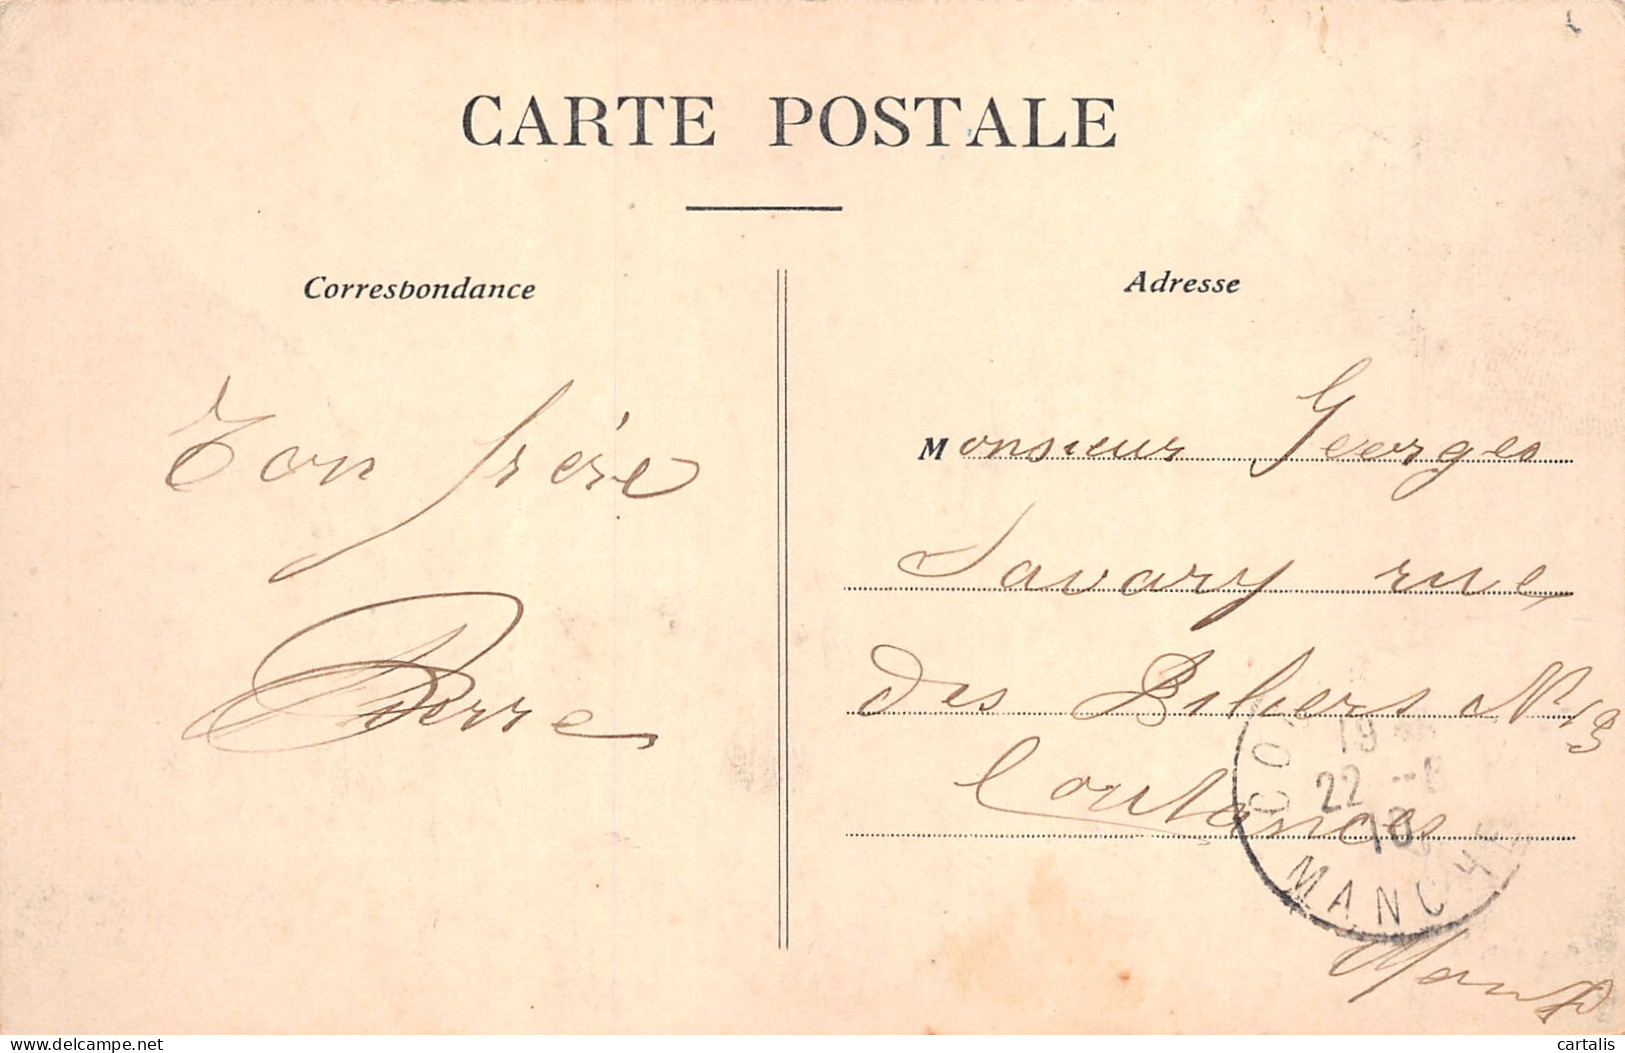 CARTE POSTALE
Correspondance
Adresse
Ton frère
Pierre
Monsieur Georges
Savary rue
des Pilliers N 13
Coutances
19
22 -8
10
MANCHE
delcampe.net
cartalis